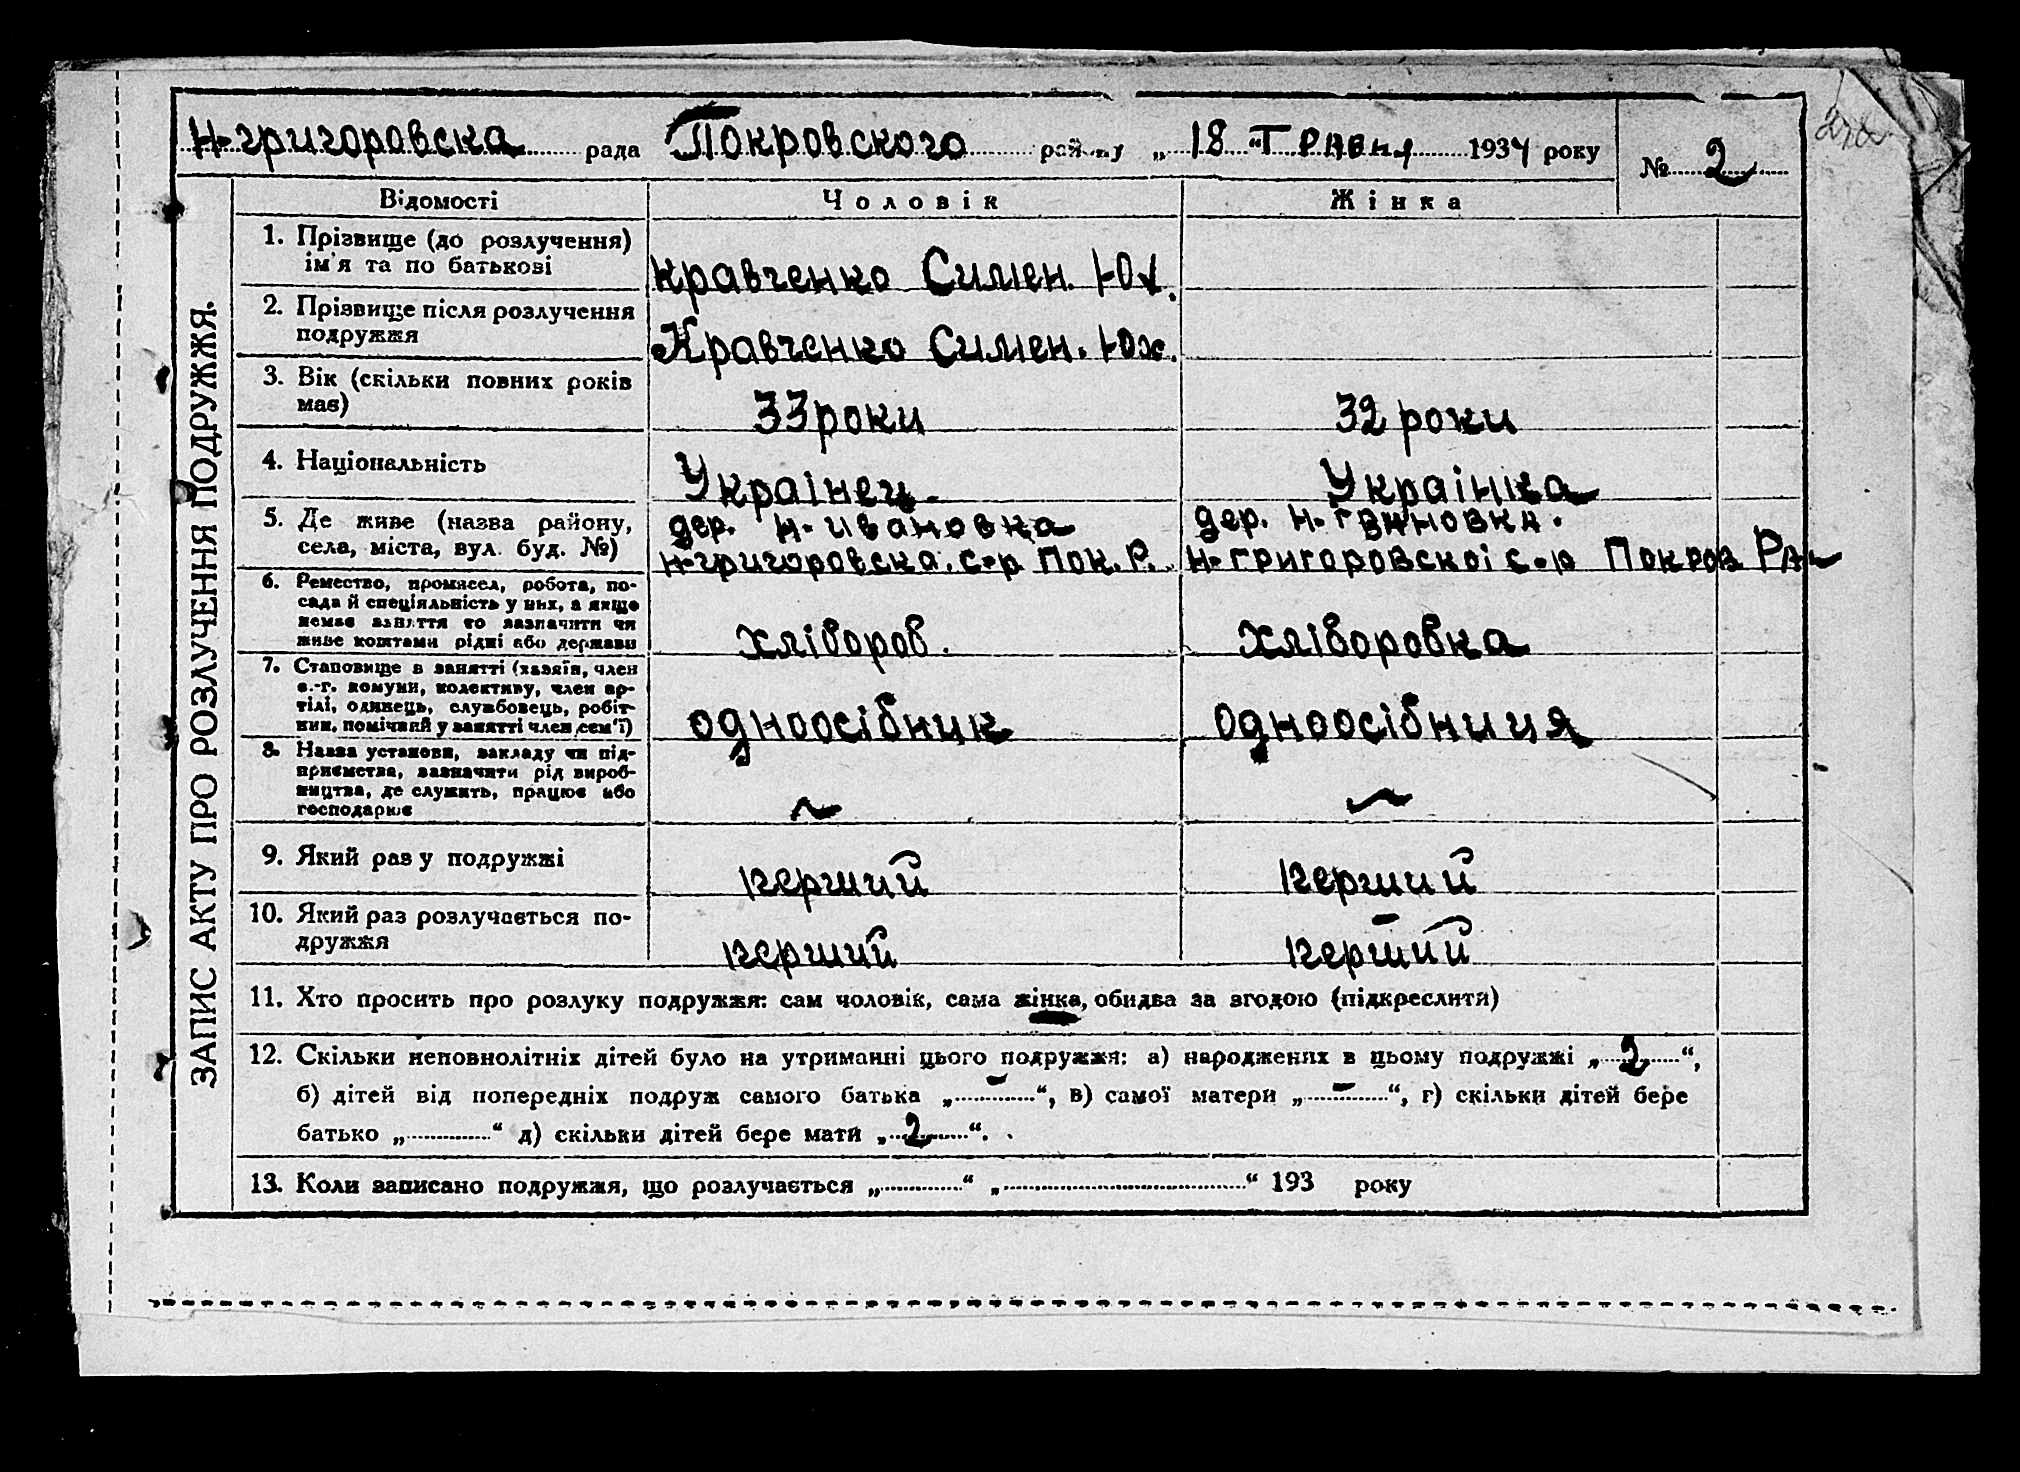 Н-григоровска рада Покровского району „ 18 “ Травня 1934 року № 2
ЗАПИС АКТУ ПРО РОЗЛУЧЕННЯ ПОДРУЖЖЯ.
Відомості Чоловік Жінка
1. Прізвище (до розлучення)
ім'я та по батькові
кравченко Симен. Юх.
2. Прізвище після розлучення
подружжя
Кравченко Симен. Юх.
3. Вік (скільки повних років
має)
33 роки 32 роки
4. Національність Украінец. Украінка
5. Де живе (назва району,
села, міста, вул. буд. №)
дер. Н-ивановка дер. Н-
Н-григоровска. с-р Пок. Р. Н-григоровскоі с-р Покров
6. Ремество, промисел, робота, по-
сада й спеціяльність у них, а якщо
немає заняття то зазначити чи
живе коштами рідні або держави
хліборов. хліборовка
7. Становище в занятті (хазяїн, член
с.-г. комуни, колективу, член ар-
тілі, одинець, службовець, робіт-
ник, помічний у занятті член сем'ї)
одноосібник одноосібниця
8. Назва установи, закладу чи під-
приємства, зазначити рід вироб-
ництва, де служить, працює або
господарює
~ ~
9. Який раз у подружжі перший перший
10. Який раз розлучається по-
дружжя
перший перший
11. Хто просить про розлуку подружжя: сам чоловік, сама жінка, обидва за згодою (підкреслити)
12. Скільки неповнолітніх дітей було на утриманні цього подружжя: а) народжених в цьому подружжі „ 2 “,
б) дітей від попередніх подруж самого батька „ - “, в) самої матери „ - “, г) скільки дітей бере
батько „ “ д) скільки дітей бере мати „ 2 “.
13. Коли записано подружжя, що розлучається „ “ „ “ 193 року